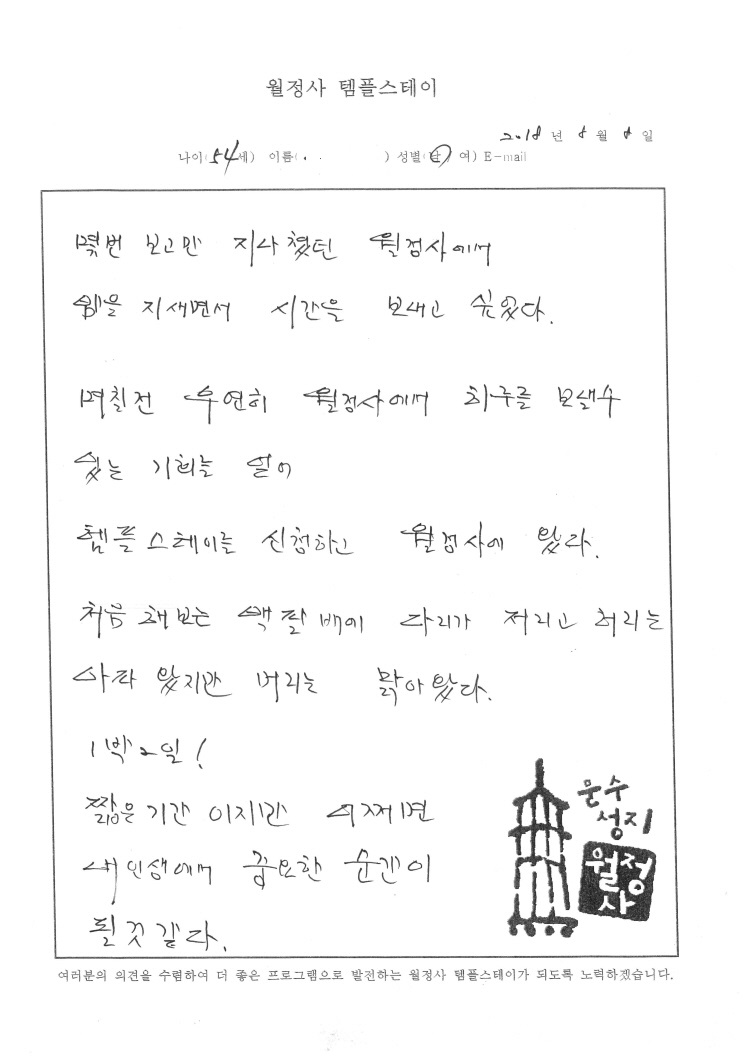 월정사 템플스테이
2018 년 8 월 8 일
나이(54세) 이름( . . ) 성별(남, 여) E-mail
몇번 보고만 지나쳤던 월정사에서
밤을 지새면서 시간을 보내고 싶었다.
며칠전 우연히 월정사에서 하루를 보낼수
있는 기회를 얻어
템플스테이를 신청하고 월정사에 왔다.
처음 해보는 백팔배에 다리가 저리고 허리는
아파 왔지만 머리는 맑아왔다.
1박2일!
짧은 기간 이지만 어쩌면
내 인생에서 중요한 순간이
될것 같다.
문수
성지
월정
사
여러분의 의견을 수렴하여 더 좋은 프로그램으로 발전하는 월정사 템플스테이가 되도록 노력하겠습니다.